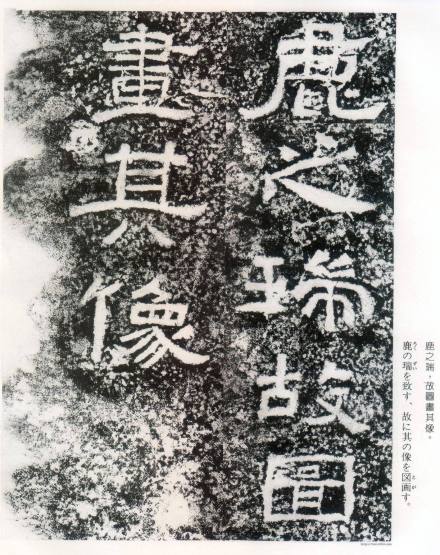 鹿之瑞故圖
畫其像
鹿之瑞，故圖畫其像。
鹿の瑞を致す、故に其の像を図画す。